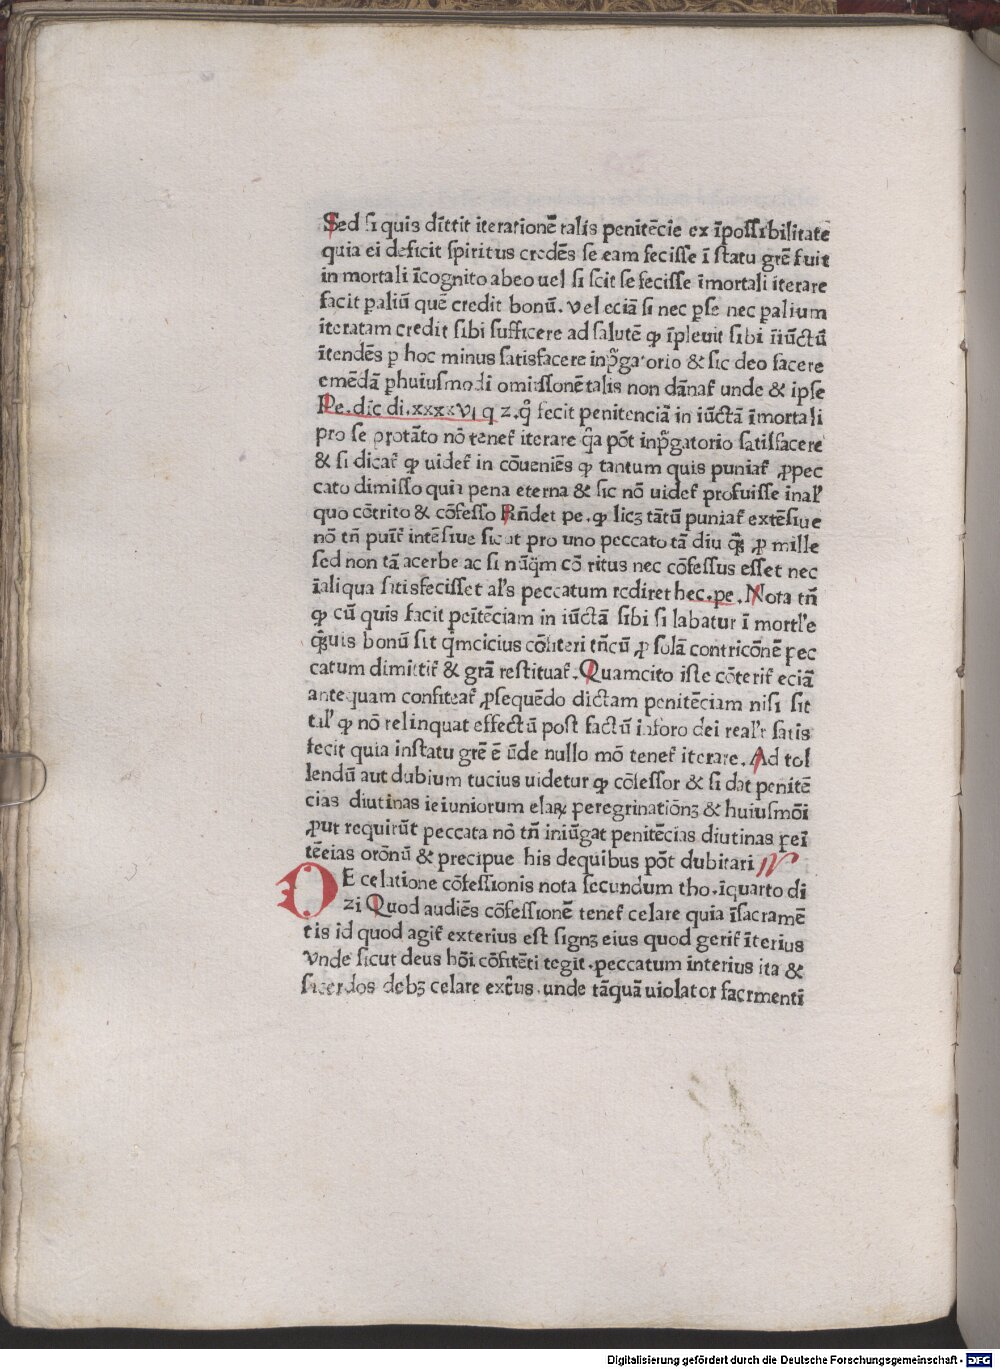 Sed si quis dīttit iterationē talis penitēcie ex īpossibilitate
quia ei deficit spiritus credēs se eam fecisse ī statu grē fuit
in mortali īcognito abeo uel si scit se fecisse īmortali iterare
facit paliū quē credit bonū. vel eciā si nec pse nec palium
iteratam credit sibi sufficere ad salutē ꝙ īpleuit sibi īiūctū
ītendēs p hoc minus satisfacere inpgatorio & sic deo facere
emēdā phuiusmodi omissionē talis non dānaꝉ unde & ipse
Pe. dic di. xxxxvi q z. q̄ fecit penitenciā in iūctā īmortali
pro se protāto nō teneꝉ iterare q̄a pōt inpgatorio satisfacere
& si dicaꝉ ꝙ uideꝉ in cōueniēs ꝙ tantum quis puniaꝉ ꝓpec
cato dimisso quia pena eterna & sic nō uideꝉ profuisse inal'
quo cōtrito & cōfesso Rñdet pe. ꝙ licꝫ tātū puniaꝉ extēsiue
nō tñ puīꝉ intēsiue sicut pro uno peccato tā diu q̄s ꝓ mille
sed non tā acerbe ac si nūq̄m cō ritus nec cōfessus esset nec
īaliqua sitisfecisset al's peccatum rediret hec. pe. Nota tñ
ꝙ cū quis facit peītēciam in iūctā sibi si labatur ī mortl'e
q̄uis bonū sit q̄mcicius cōfiteri tñcū ꝓ solā contricōnē pec
catum dimittiꝉ & grā restituaꝉ. Quamcito iste cōteriꝉ eciā
antequam confiteaꝉ ꝓsequēdo dictam penitēciam nisi sit
tal' ꝙ nō relinquat effectū post factū inforo dei real'r satis
fecit quia instatu grē ē ūde nullo mō teneꝉ iterare. Ad tol
lendū aut dubium tucius uidetur ꝙ cōfessor & si dat penitē
cias diutinas ieiuniorum elaꝝ peregrinationꝫ & huiusmōi
ꝓut requirūt peccata nō tñ iniūgat penitēcias diutinas peī
tēcias orōnū & precipue his dequibus pōt dubitari
DE celatione cōfessionis nota secundum tho. iquarto di
zi Quod audiēs cōfessionē teneꝉ celare quia īsacramē
tis id quod agiꝉ exterius est signꝫ eius quod geriꝉ īterius
vnde sicut deus hōi cōfitēti tegit. peccatum īnterius ita &
sacerdos debꝫ celare extius. unde tāquā uiolator sacrmenti
Digitalisierung gefördert durch die Deutsche Forschungsgemeinschaft - DFG